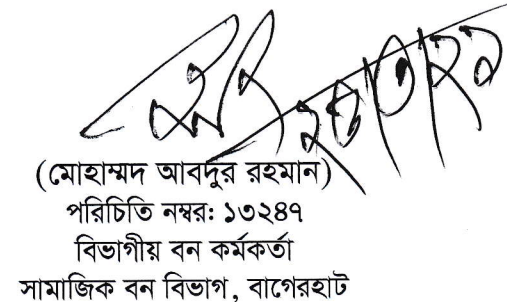 (মোহাম্মদ আবদুর রহমান)
পরিচিতি নম্বর: ১৩২৪৭
বিভাগীয় বন কর্মকর্তা
সামাজিক বন বিভাগ, বাগেরহাট